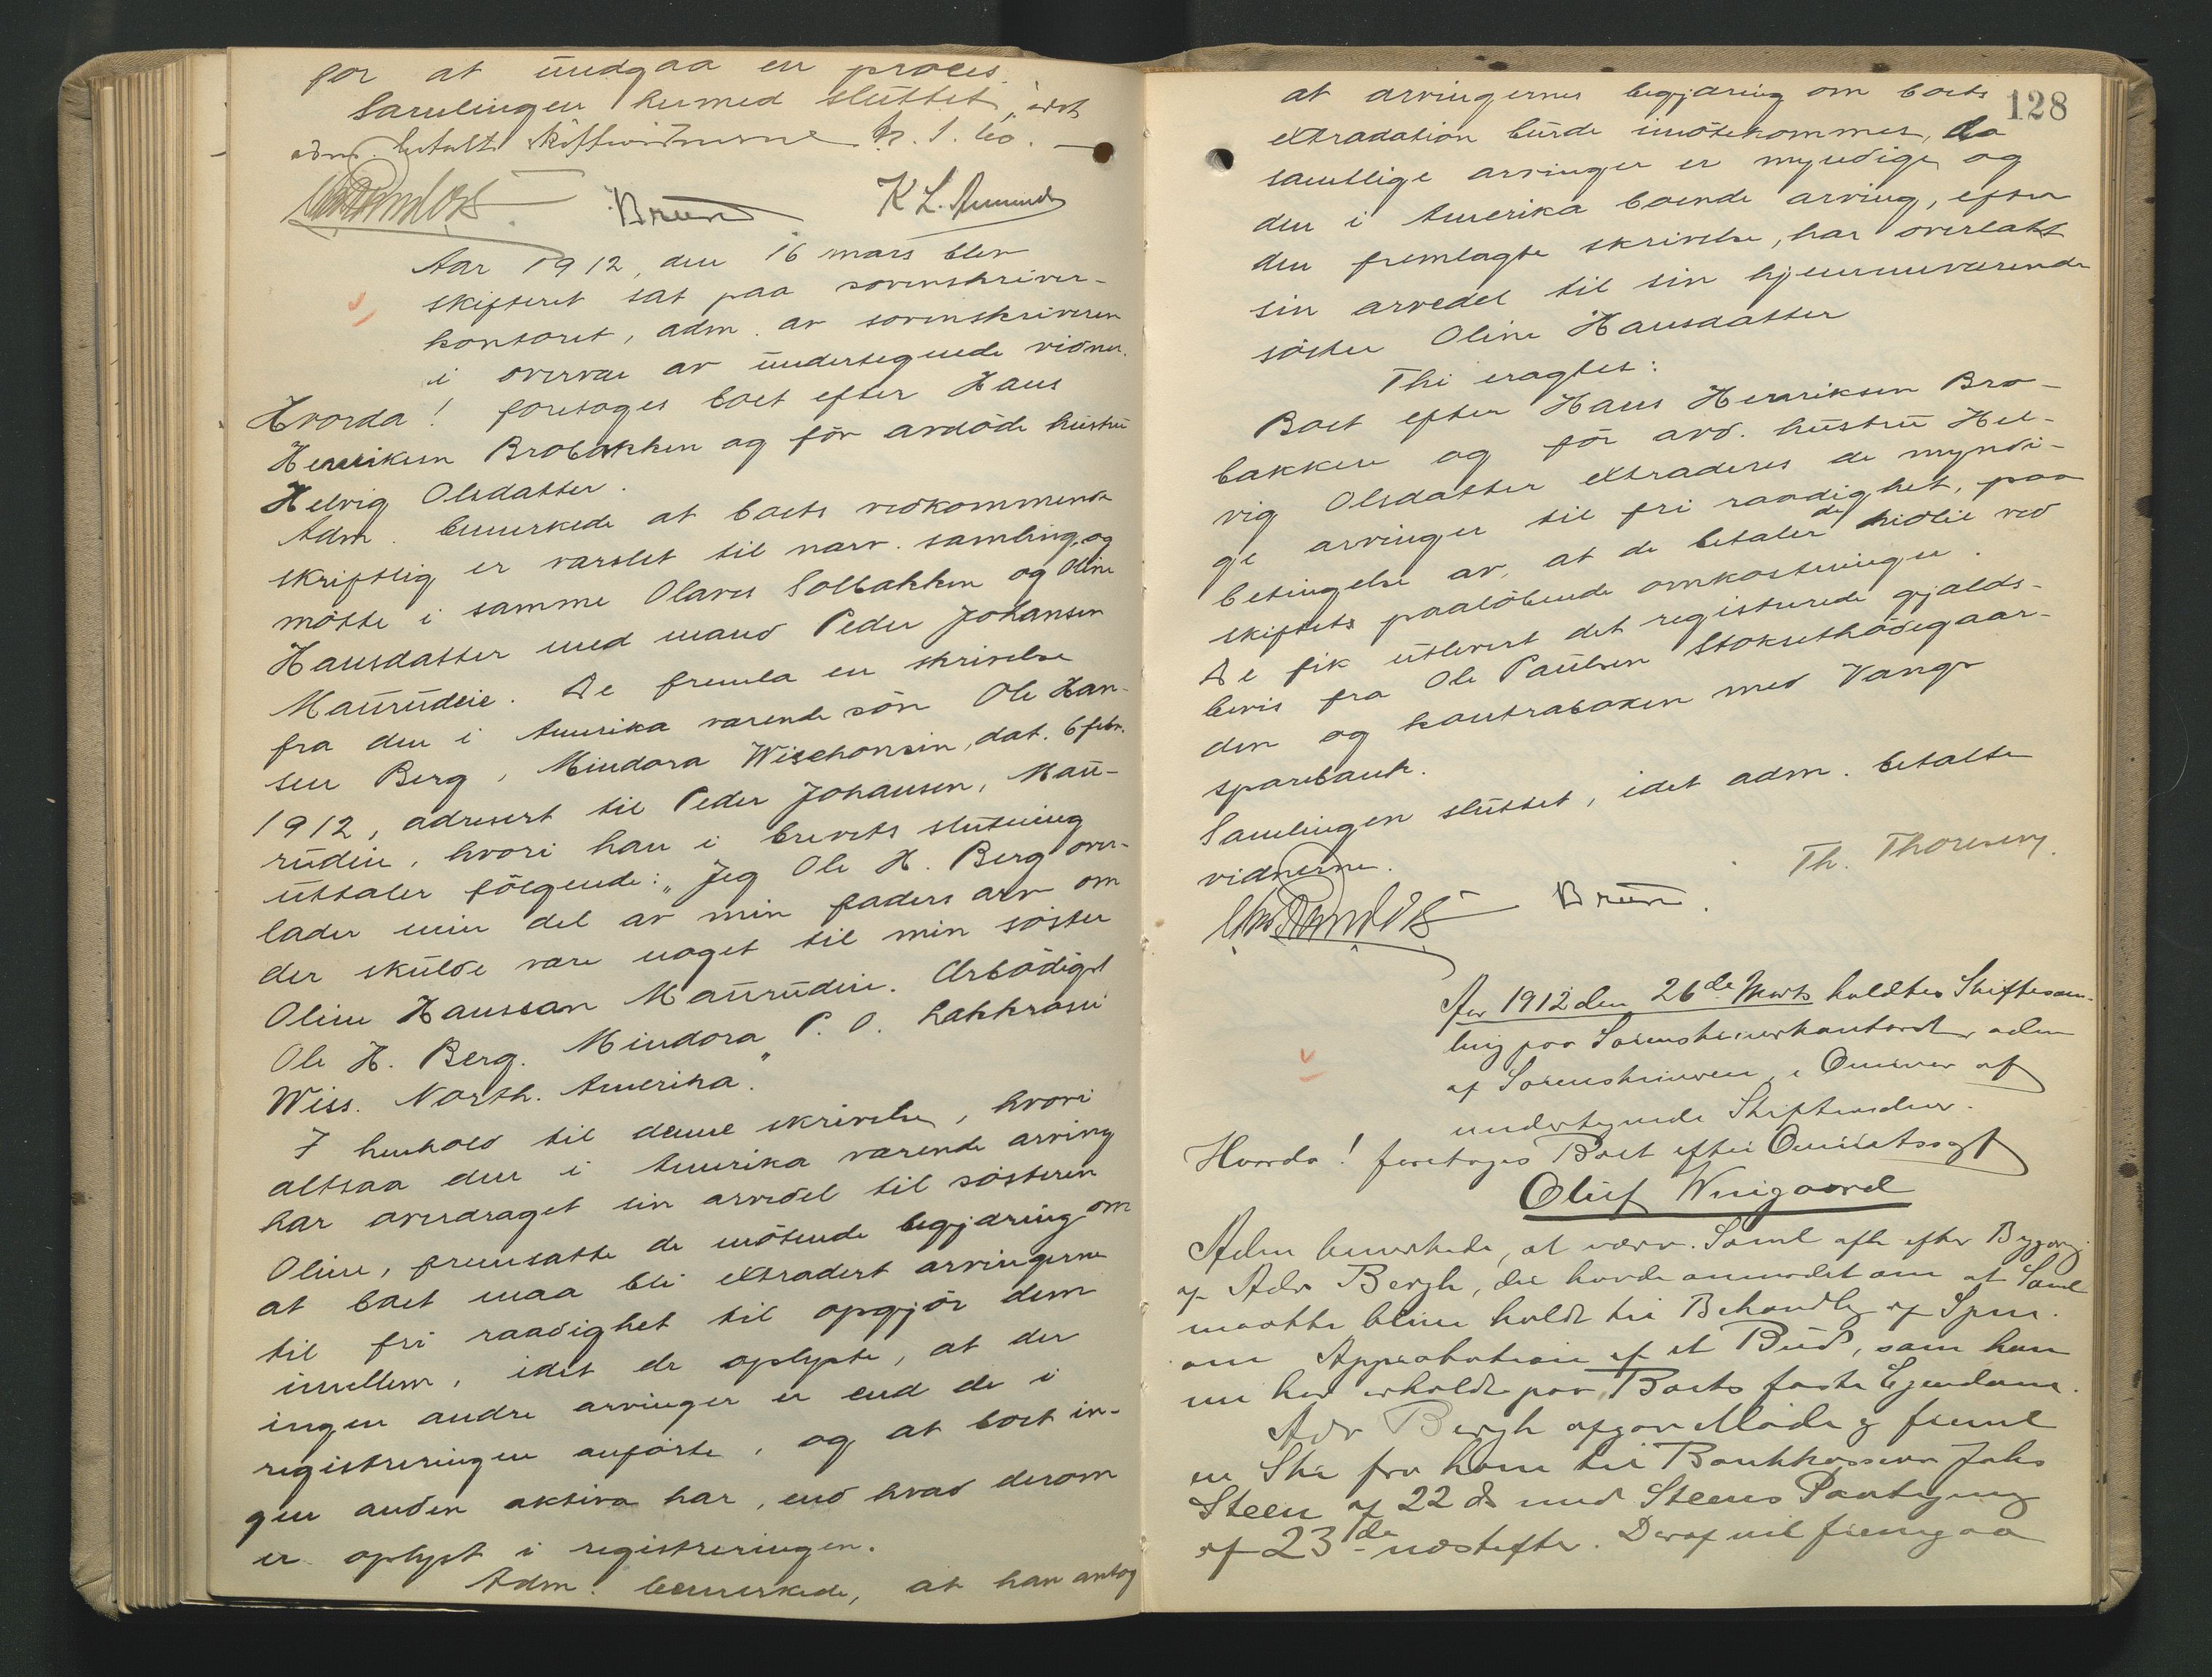 for at undgaa en proces.
Samlingen hermed sluttet, idet
adm. betalte skiftevidnerne kr. 1.60.
Brun K L. Amund
Aar 1912, den 16 mars blev
skifteret sat paa sorenskriver-
kontoret, adm. av sorenskriveren
i overvær av undertegnede vidner.
Hvorda! foretoges boet efter Hans
Henriksen Brobakken og før avdøde hustru
Helvig Olsdatter.
Adm. bemerkede at boets vedkommende
skriftlig er varslet til nærv. samling, og
møtte i samme Olaves Solbakken og Oline
Hansdatter med mand Peder Johansen
Maurudeie. De fremla en skrivelse
fra den i Amerika værende søn Ole Han-
sen Berg, Mindora Wischonsin, dat. 6 febr.
1912, adresert til Peder Johansen, Mau-
rudeie, hvori han i brevets slutning
uttaler følgende: „Jeg Ole H. Berg over-
lader min del av min faders arv om
der skulde være noget til min søster
Oline Hanssan Maurudeie. Ærbødigst
Ole H. Berg. Mindora P. O. Lakkrosse
Wiss. North. Amerika."
I henhold til denne skrivelse, hvori
altsaa den i Amerika værende arving
har overdraget sin arvedel til søsteren
Oline, fremsatte de møtende begjæring om
at boet maa bli extradert arvingerne
til fri raadighet til opgjør dem
imellem, idet de oplyste, at der
ingen andre arvinger er end de i
registreringen anførte, og at boet in-
gen anden aktiva har, end hvad derom
er oplyst i registreringen.
Adm. bemerkede, at han antog
128
at arvingernes begjæring om boets
extradation burde imøtekommes, da
samtlige arvinger er myndige og
den i Amerika boende arving, efter
den fremlagte skrivelse, har overlatt
sin arvedel til sin hjemmeværende
søster Oline Hansdatter
Thi eragtes:
Boet efter Hans Henriksen Bro-
bakken og før avd. hustru Hel-
vig Olsdatter extraderes de myndi-
ge arvinger til fri raadighet, paa
betingelse av, at de betaler de hidtil ved
skiftets paaløbende omkostninger.
De fik utlevert det registrerede gjælds-
bevis fra Ole Paulsen Stoksethødegaar-
den og kontraboken med Vangs
sparebank.
Samlingen sluttet, idet adm. betalte
vidnerne.
Brun. Th. Thoresen.
Aar 1912 den 26de Marts holdtes Skiftesam-
ling paa Sorenskriverkontoret, adm
af Sorenskriveren i Overvær af
undertegnede Skiftevidner.
Hvorda! foretoges Boet efter Omiietssagf
Oluf Wiigaard
Adm bemerkede, at nærv. Saml afh efter Begjæring
af Adv Bergh, der havde anmodet om at Saml
maatte blive holdt til Behandlg af Spm.
om Approbation af et Bud, som han
nu har erholdt paa Boets faste Ejendom.
Adv Bergh afgav Møde og freml
en Skr fra ham til Bankkasserer Johs
Steen af 22 ds med Steens Paategning
af 23de næstefter. Deraf vil fremgaa